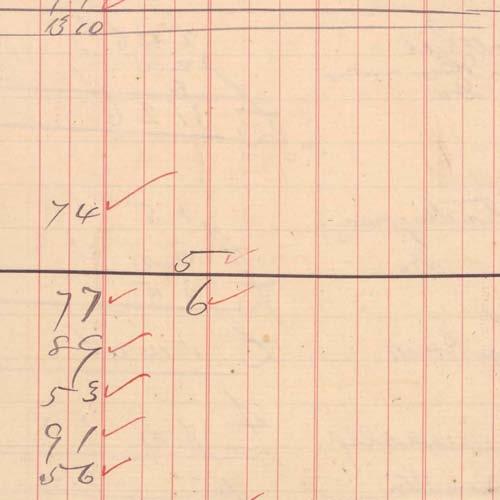 1310
74
5
77 6
89
53
91
56